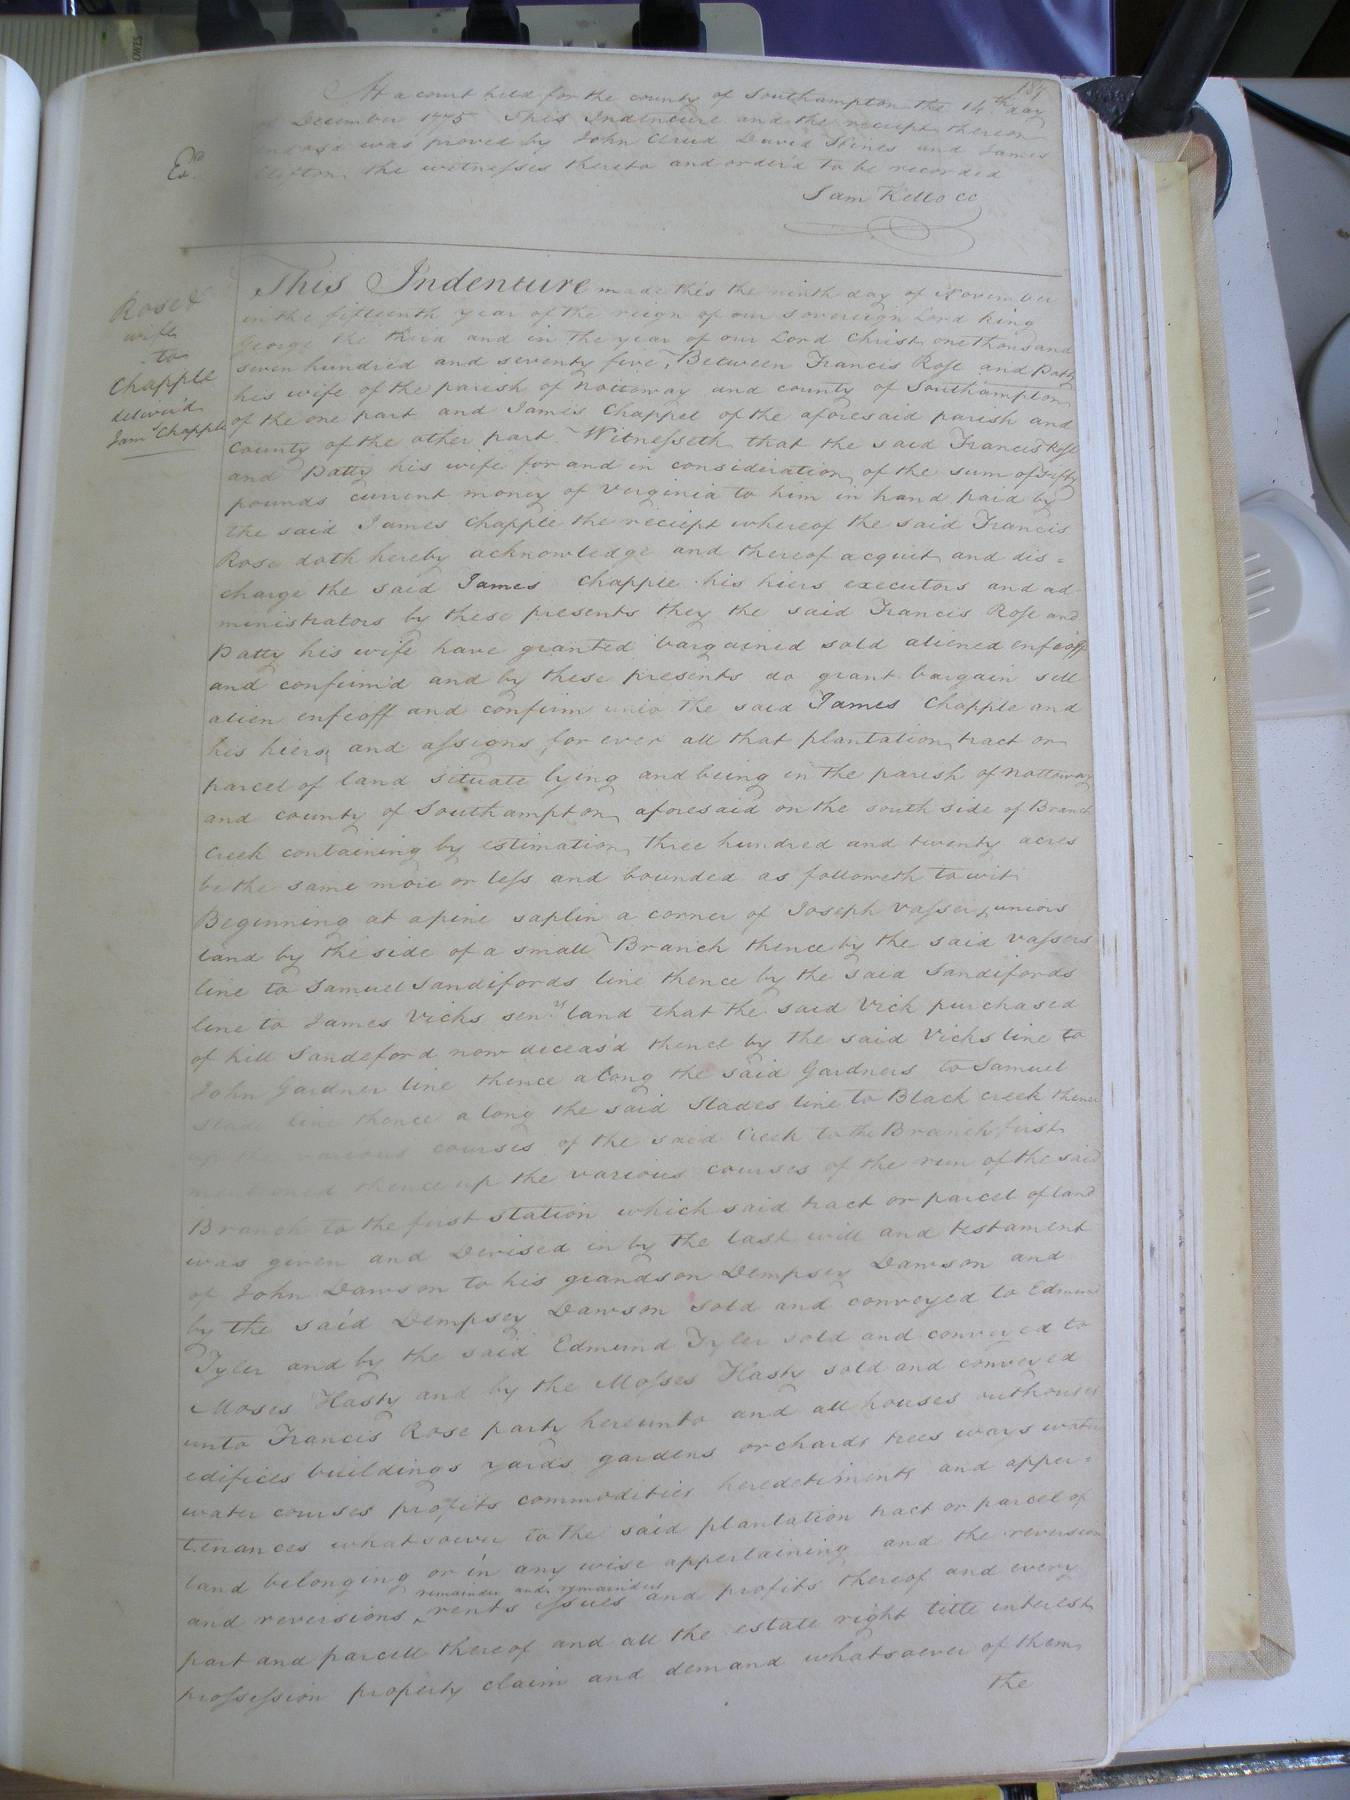 187
At a court held for the county of Southampton the 14th day
of December 1775 This Indenture and the receipt thereon
was proved by John David and James
Clifton the witnesses thereto and order'd to be recorded
Exd
Sam Kello CC
Rose &
wife
to
Chapple
deliver'd
Jams Chapple
This Indenture made this the ninth day of November
in the fifteenth year of the reign of our sovereign Lord king
George the third and in the year of our Lord Christ one thousand
seven hundred and seventy five, Between Francis Rose and Patty
his wife of the parish of Nottoway and county of Southampton
of the one part and James Chappel of the aforesaid parish and
County of the other part Witnesseth that the said Francis Rose
and Patty his wife for and in consideration of the sum of Fifty
pounds current money of Verginia to him in hand paid by
the said James Chapple the reciept whereof the said Francis
Rose doth hereby acknowledge and thereof acquit and dis=
charge the said James Chapple his hiers executors and ad-
ministrators by these presents they the said Francis Rose and
Patty his wife have granted bargained sold aliened enfeoff
and confirm'd and by these presents do grant bargain sell
alien enfeoff and confirm unto the said James Chapple and
his hiers and assigns for ever all that plantation tract or
parcel of land situate lying and being in the parish of Nottoway
and county of Southampton aforesaid on the south side of Branch
Creek containing by estimation three hundred and twenty acres
be the same more or less and bounded as followeth to wit
Beginning at a pine saplin a corner of Joseph Vasser juniors
land by the side of a small Branch thence by the said Vassers
line to Samuel Sandifords line thence by the said Sandifords
line to James Vicks senr. land that the said Vick purchased
of hill Sandeford now deceas'd thence by the said Vicks line to
John Gardner line thence along the said Gardners to Samuel
Slade line thence along the said Slades line to Black creek thence
up the various courses of the said Creek to the Branch first
mentioned thence up the various courses of the run of the said
Branch to the first station which said tract or parcel of land
was given and Devised in by the last will and testament
of John Dawson to his grandson Dempsey Dawson and
by the said Dempsey Dawson sold and conveyed to Edmund
Tyler and by the said Edmund Tyler sold and conveyed to
Moses Hasty and by the Mosses Hasty sold and conveyed
unto Francis Rose party hereunto and all houses outhouses
edifices buildings yards gardens orchards trees ways water
water courses profits commodities heredetiments and apper=
tenances whatsoever to the said plantation tract or parcel of
land belonging or in any wise appertaining and the reversion
remainder and remainders
and reversions ^ rents issues and profits thereof and every
part and parcell thereof and all the estate right title interest
prossession property claim and demand whatsoever of them
the